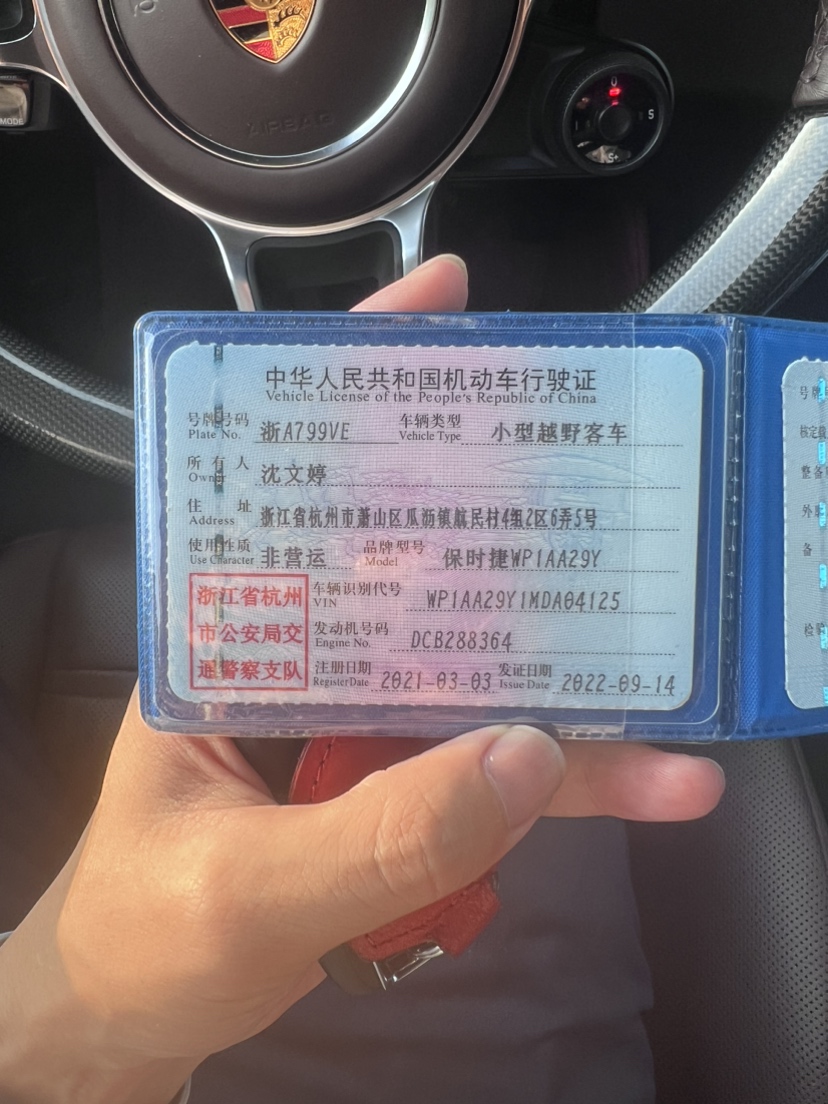 AIRBAG
MODE
S
S+
中华人民共和国机动车行驶证
Vehicle License of the People's Republic of China
号牌号码 浙A799VE 车辆类型 小型越野客车
Plate No. Vehicle Type
所有人 沈文婷
Owner
住址 浙江省杭州市萧山区瓜沥镇航民村4组2区6弄5号
Address
使用性质 非营运 品牌型号 保时捷WP1AA29Y
Use Character Model
浙江省杭州
市公安局交
通警察支队
车辆识别代号 WP1AA29Y1MDA04125
VIN
发动机号码 DCB288364
Engine No.
注册日期 2021-03-03 发证日期 2022-09-14
Register Date Issue Date
号牌
核定载
整备
外
备
检验